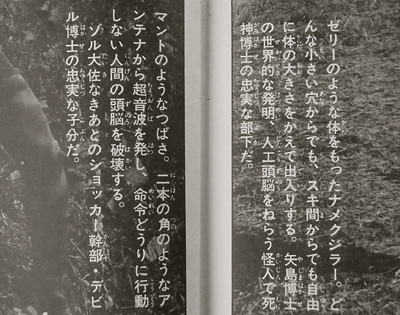 ゼリーのような体をもったナメクジラー。ど
んな小さい穴からでも、スキ間からでも自由
に体の大きさをかえて出入りする。矢島博士
の世界的な発明、人工頭脳をねらう怪人で死
神博士の忠実な部下だ。
マントのようなつばさ。二本の角のようなア
ンテナから超音波を発し、命令どうりに行動
しない人間の頭脳を破壊する。
ゾル大佐なきあとのショッカー幹部・デビ
ル博士の忠実な子分だ。